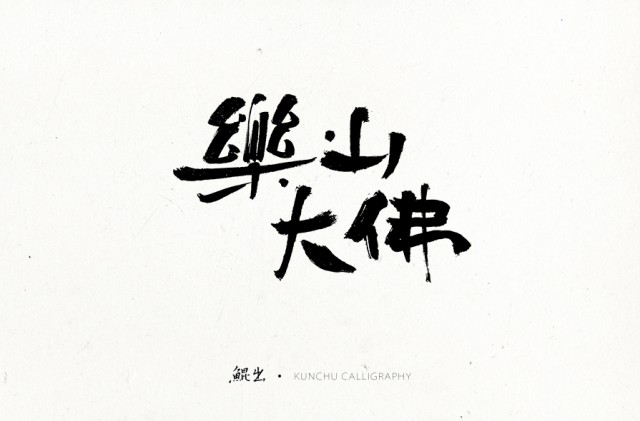 樂山
大佛
鯤出 • KUNCHU CALLIGRAPHY